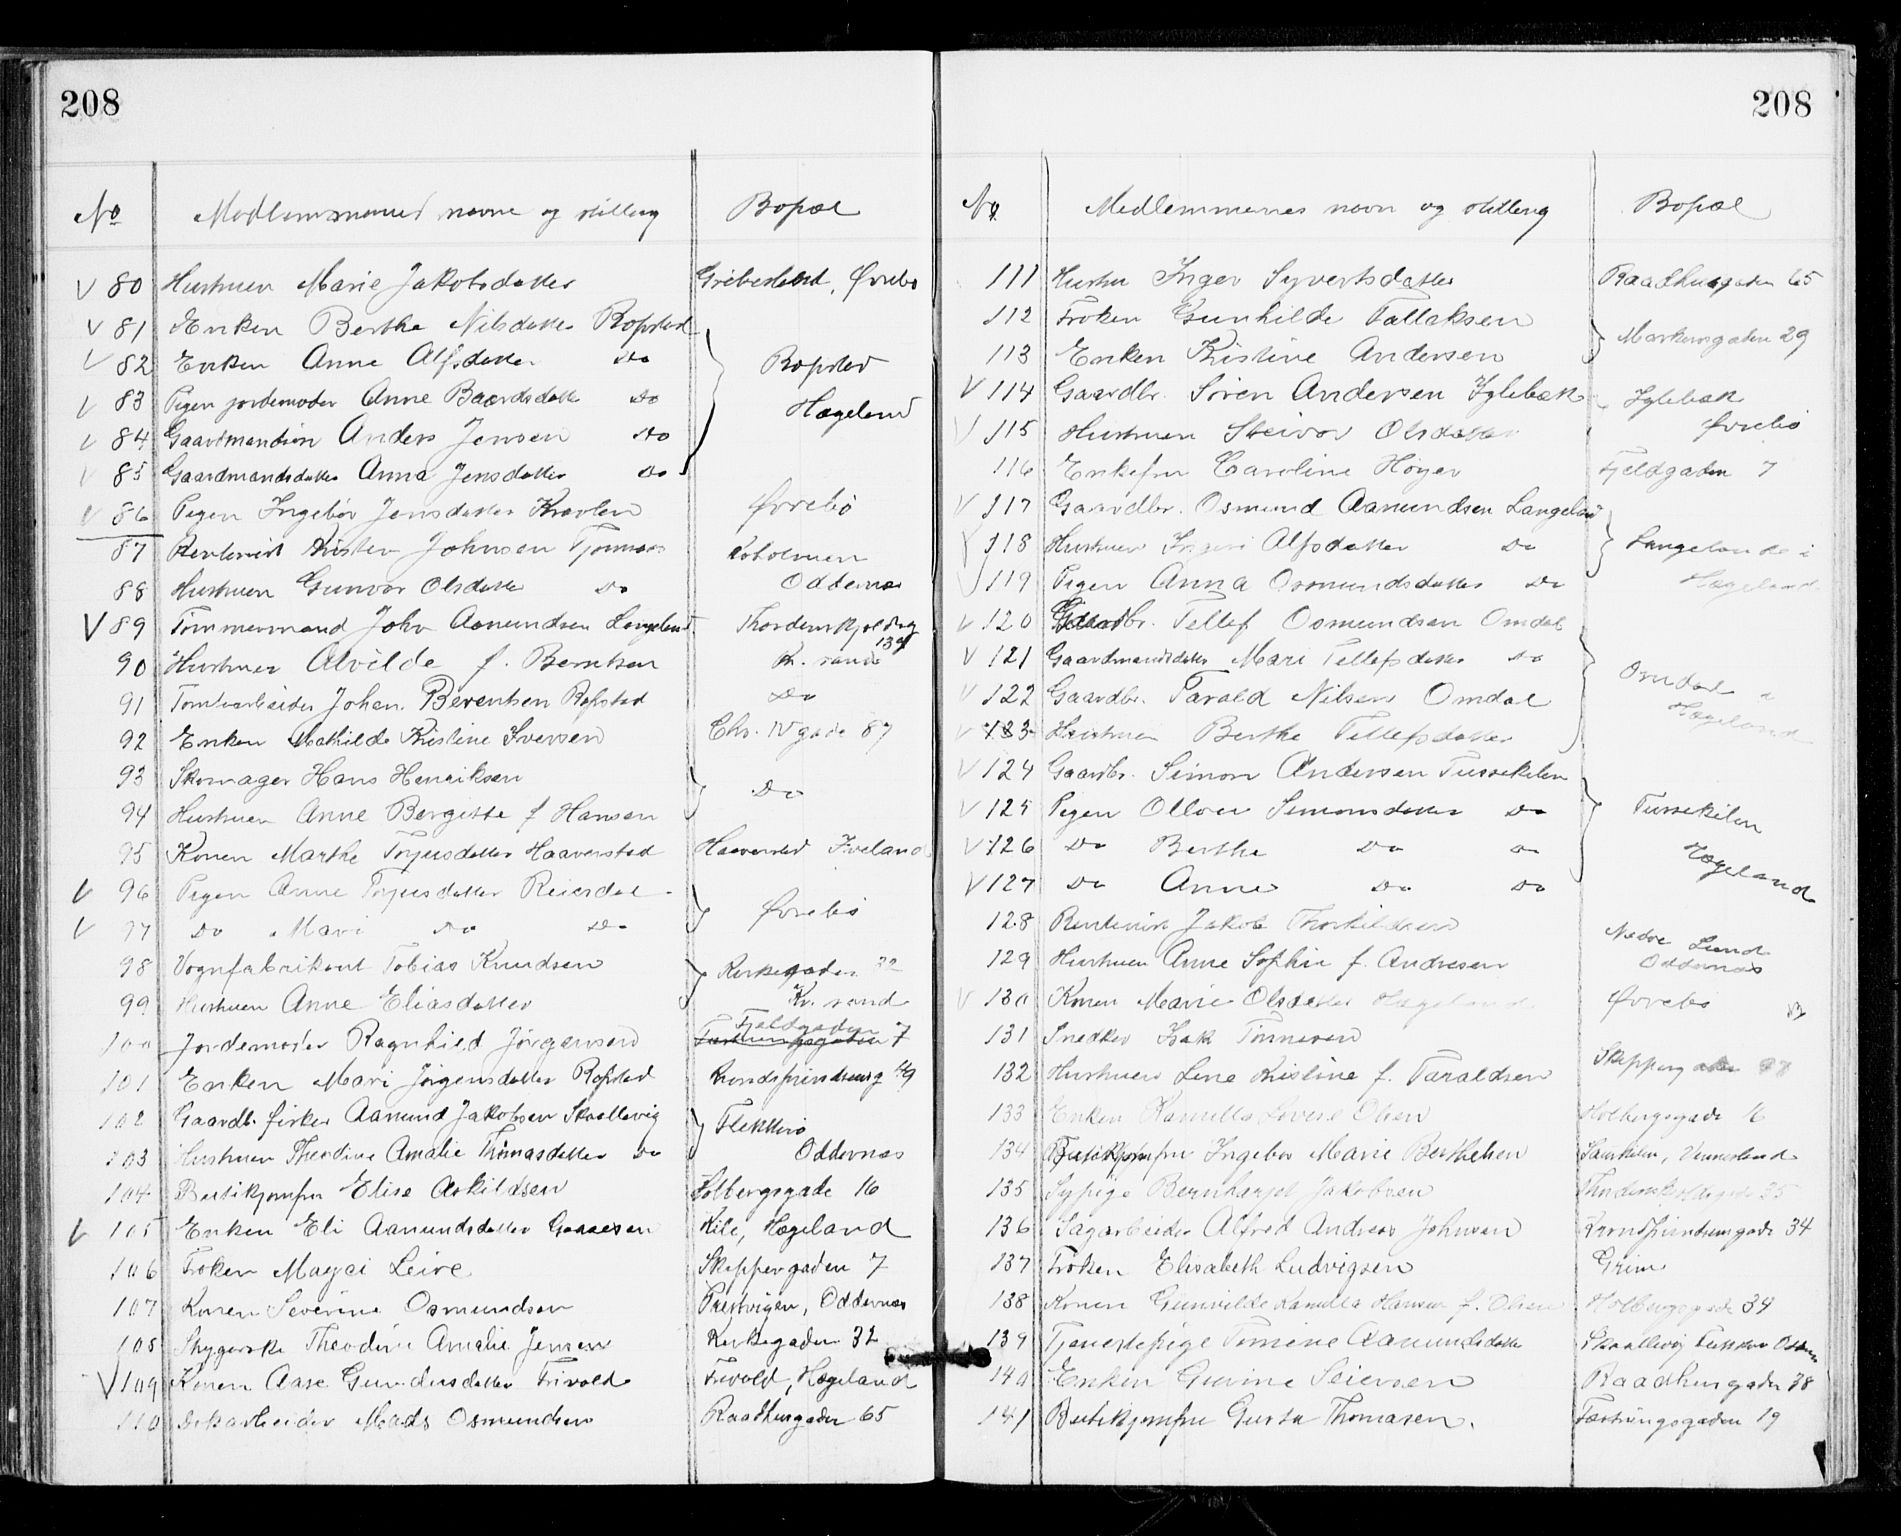 208
No Medlemmernes navne og stilling Bopæl
V 80 Hustruen Marie Jakobsdatter Gribesland, Øvrebø
V 81 Enken Berthe Nilsdatter Ropstad
V 82 Enken Anne Alfsdatter Do Ropstad
V 83 Pigen jordemoder Anne Baardsdatter Do Hægeland
V 84 Gaardmandsøn Anders Jensen Do
V 85 Gaardmandsdatter Anna Jensdatter Do
V 86 Pigen Ingebør Jensdatter Øvrebø
87 Rentenist Johnsen
88 Hustruen Gunvor Olsdatter Do Oddernes
V 89 Tømmermand John Aanundsen Langeland
90 Hustruen Alvilde f. Berntsen Kr. sand
91 Tomtearbeider Johan Berentsen Ropstad Do
92 Enken Mathilde Kristine Iversen Chr. IV gade 87
93 Skomager Hans Henriksen
94 Hustruen Anne Bergitte f Hansen Do
95 Konen Marthe Terjusdatter Haaverstad Haaverstad Iveland
V 96 Pigen Anne Terjusdatter Reiersdal
V 97 Do Mari Do Do Øvrebø
98 Vognfabrikant Tobias Knudsen Kirkegaden 32
99 Hustruen Anne Eliasdatter Kr. sand
100 Jordemoder Ragnhild Jørgensen Fjeldgaden 7
101 Enken Mari Jørgensdatter Ropstad
102 Gaardb. fisker Aanund Jakobsen Skaallevig Flekkerø
103 Hustruen Theodine Amalie Thomasdatter Do Oddernes
104 Butikjomfru Elise Askildsen Holbergsgade 16
V 105 Enken Eli Aanundsdatter Gaaseson Kile, Hægeland
106 Frøken Leire Skippergaden 7
107 Konen Severine Osmundsen Prestvigen, Oddernes
108 Theodine Amalie Jensen Kirkegaden 32
V 109 Konen Aase Gundersdatter Trivold Trivold, Hægeland
110 Mads Osmundsen Raadhusgaden 65
208
No Medlemmernes navn og stilling Bopæl
111 Hustru Inger Syvertsdatter Raadhusgaden 65
112 Frøken Gunhilde Tallaksen
113 Enken Kristine Andersen Markensgaden 29
V 114 Gaardbr. Søren Andersen Iglebæk Iglebæk
V 115 Hustruen Steivor Olsdatter Øvrebø
116 Enkefru Caroline Høyer Fjeldgaden 7
V 117 Gaardbr. Osmund Aanundsen Langeland
V 118 Hustruen Alfsdatter Do Langeland i
V 119 Pigen Anna Osmundsdatter Do Hægeland
V 120 Gaardbr. Tellef Osmundsen Omdal
V 121 Gaardmandsdatter Mari Tellefsdatter Do
V 122 Gaardbr. Tarald Nilsen Omdal Omdal i
V 123 Hustruen Berthe Tellefsdatter Hægeland
V 124 Gaardbr. Simon Andersen Tussekilen
V 125 Pigen Simonsdatter Do Tussekilen
V 126 Do Berthe Do Do Hægeland
V 127 Do Anne Do Do
128 Rentenist Jakob Thorkildsen Nedre Lund
129 Hustruen Anne Sophie f. Andresen Oddernes
V 130 Konen Marie Olsdatter Hægeland Øvrebø
131 Snedker Isak Tønnesen
132 Hustruen Line Kristine f. Taraldsen
133 Enken Kamilla Lovise Olsen Holbergsgade 16
134 Butikjomfru Ingebor Marie Berthelsen Vennesland
135 Sypige Jakobsen Thordenskjoldsgade 35
136 Sagarbeider Alfred Andreas Johnsen Kronsprindsensgade 34
137 Frøken Elisabeth Ludvigsen Grim
138 Konen Gunvilde Kamilla Hansen f. Olsen Holbergsgade 34
139 Tjenestepige Tomine Aanundsdatter
140 Enken Gurine Seiersen Raadhusgaden 78
141 Butikjomfru Gusta Thomasen. Fæstningsgaden 19